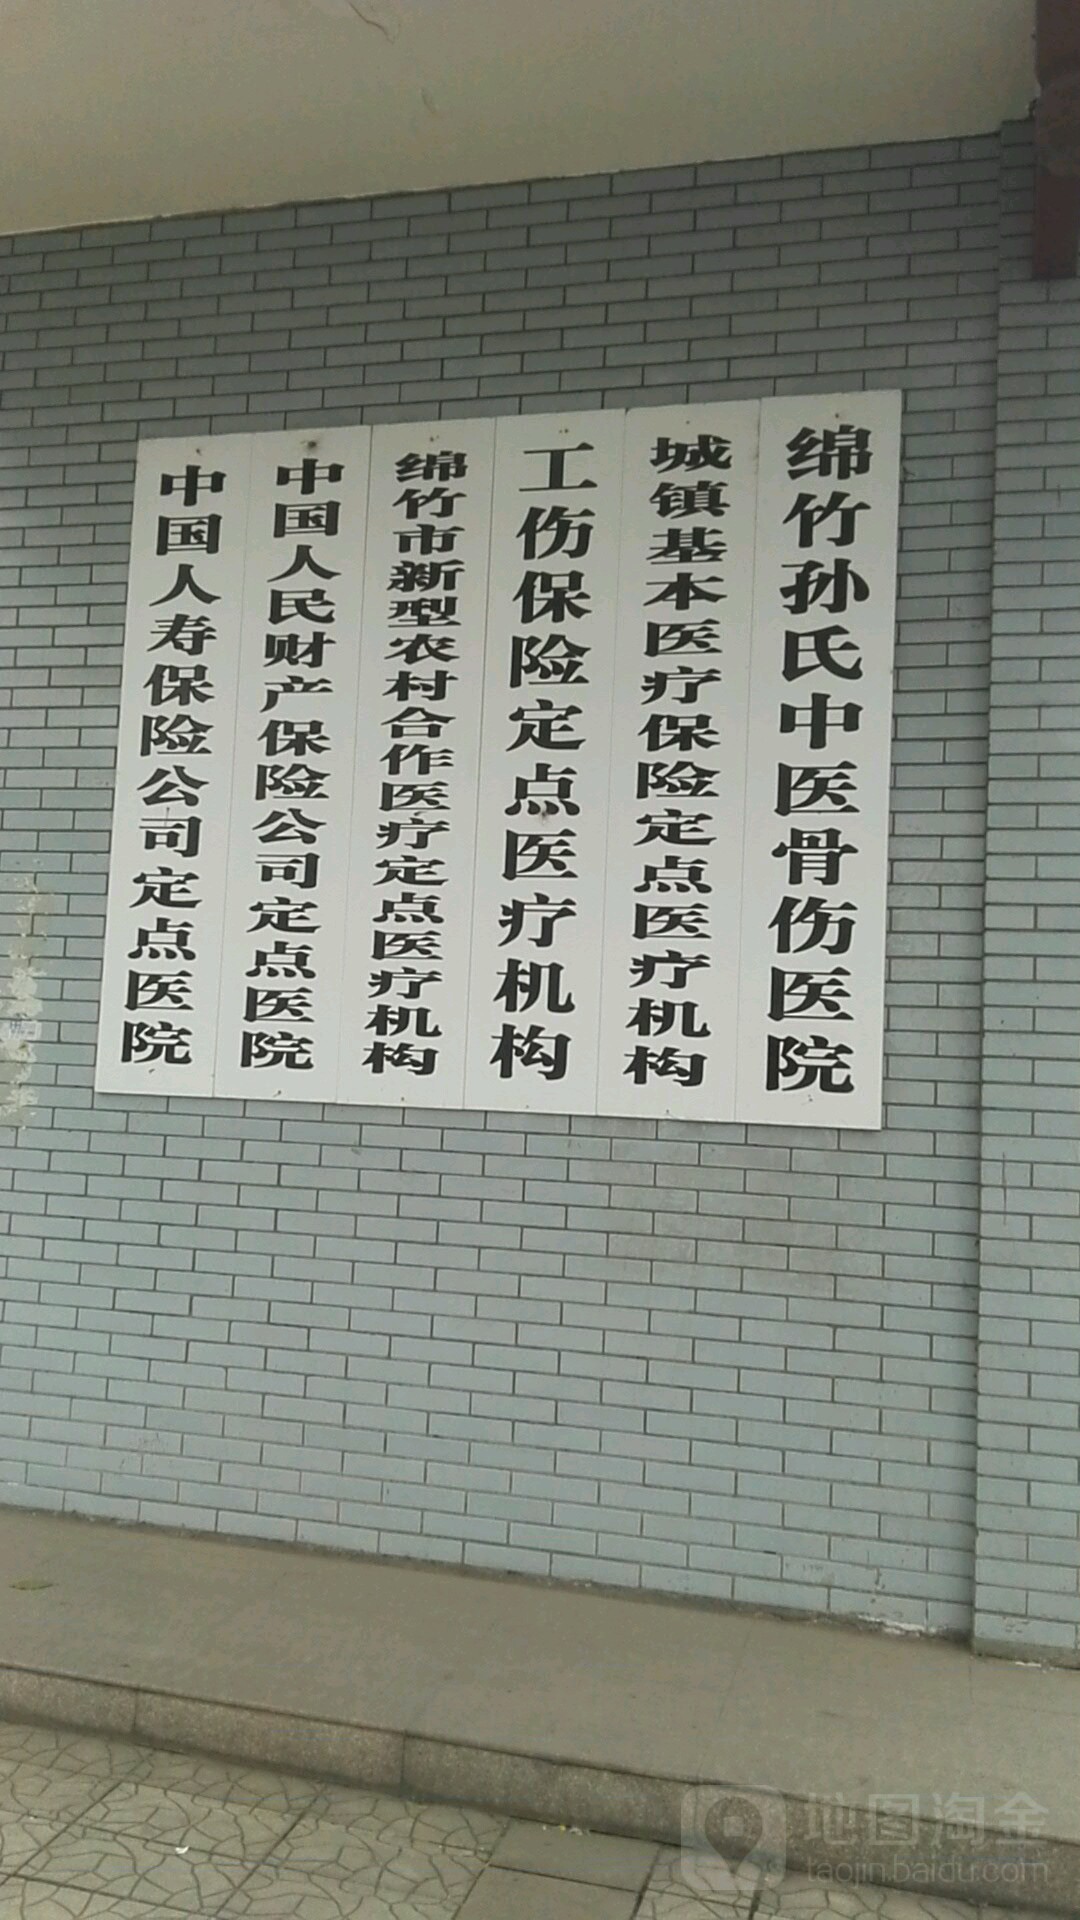 绵竹孙氏中医骨伤医院
城镇基本医疗保险定点医疗机构
工伤保险定点医疗机构
绵竹市新型农村合作医疗定点医疗机构
中国人民财产保险公司定点医院
中国人寿保险公司定点医院
地图淘金
taojin.baidu.com